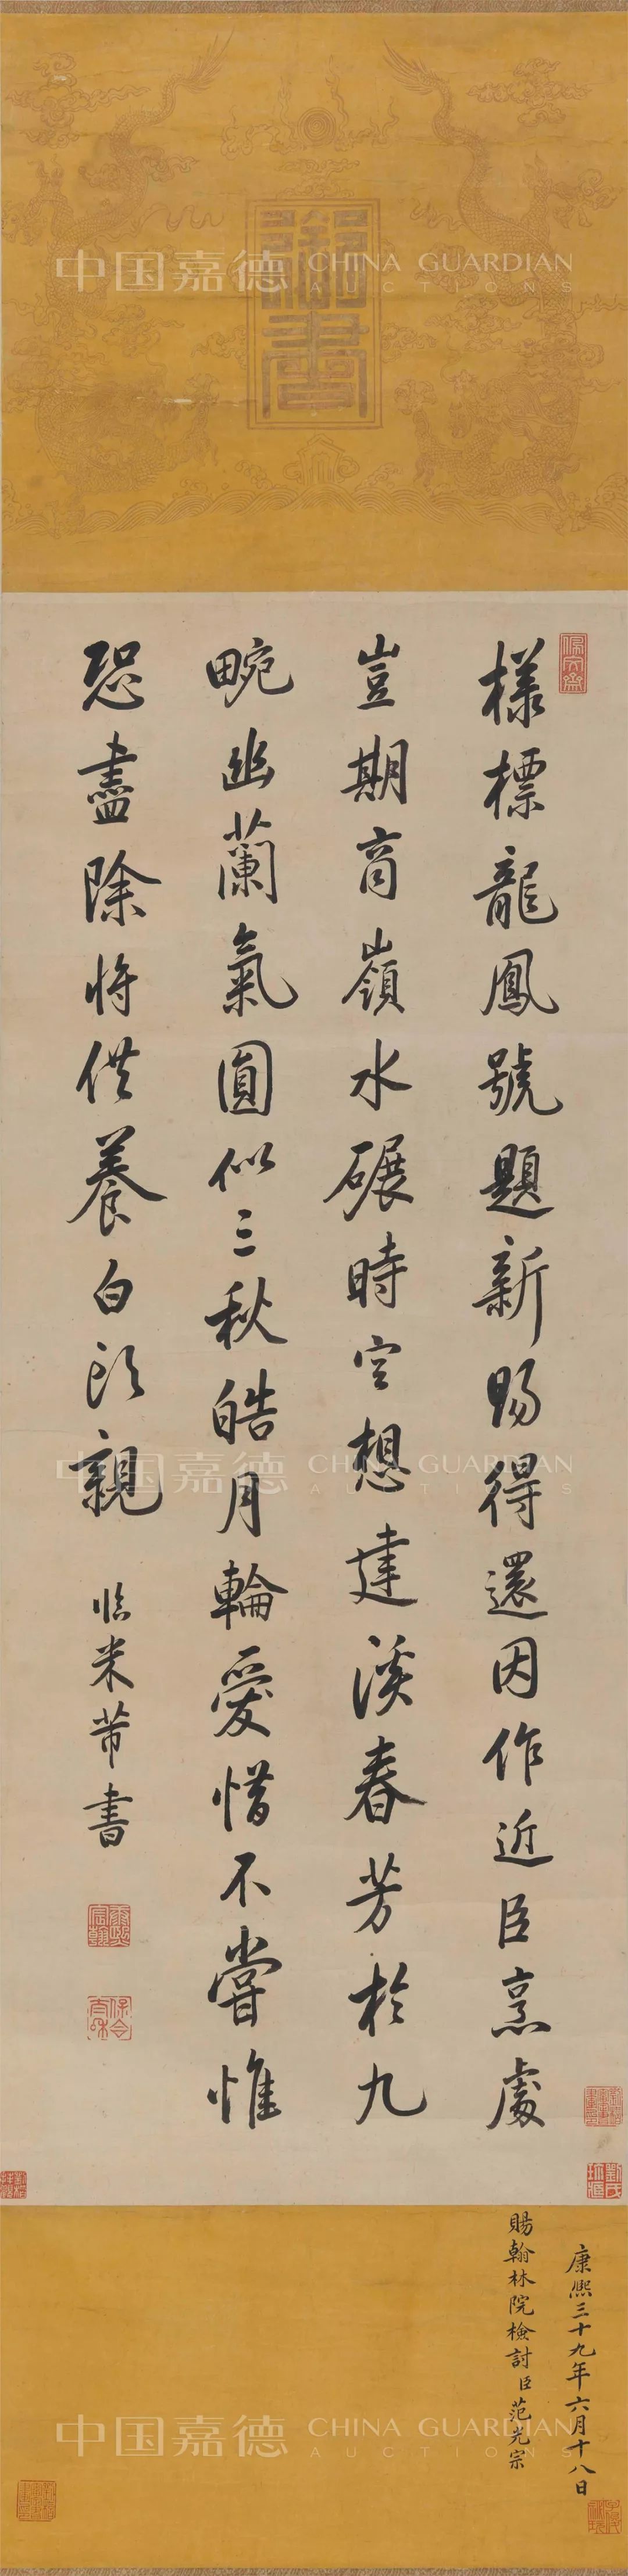 御書
樣標龍鳳號題新賜得還因作近臣烹處
豈期商嶺水碾時空想建溪春芳於九
畹幽蘭氣圓似三秋皓月輪愛惜不嘗惟
恐盡除將供養白頭親
臨米芾書
佩文齋
康熙宸翰
保合太和
康熙三十九年六月十八日
賜翰林院檢討臣范光宗
中国嘉德 CHINA GUARDIAN AUCTIONS
中国嘉德 CHINA GUARDIAN AUCTIONS
中国嘉德 CHINA GUARDIAN AUCTIONS